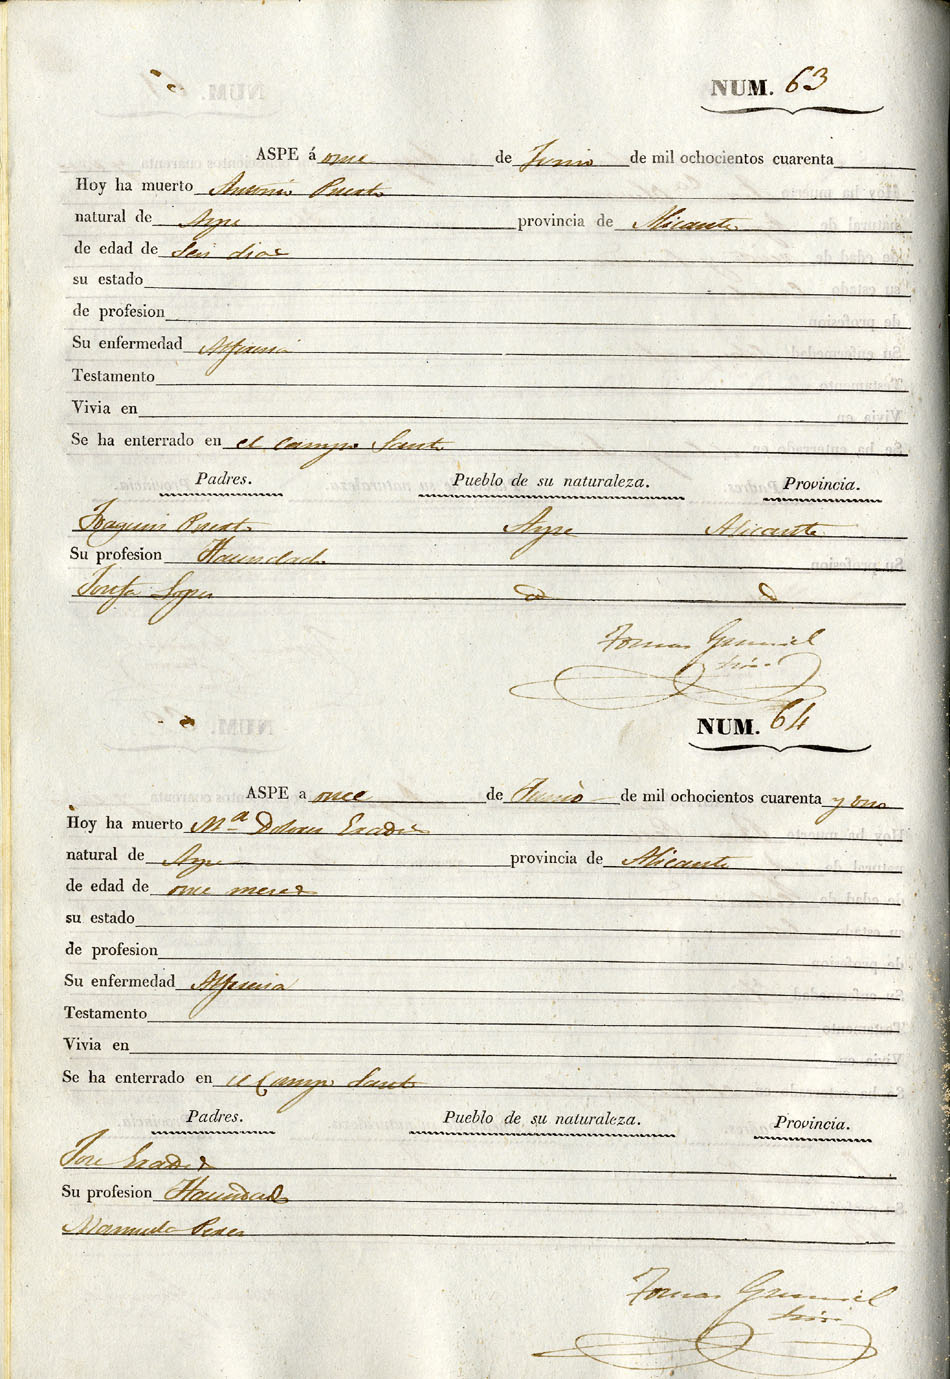 NUM. 63
ASPE á once de Junio de mil ochocientos cuarenta
Hoy ha muerto Antonio Puerto
natural de Aspe provincia de Alicante
de edad de seis dias
su estado
de profesion
Su enfermedad Alferecia
Testamento
Vivia en
Se ha enterrado en el Campo Santo
Padres. Pueblo de su naturaleza. Provincia.
Joaquin Puerto Aspe Alicante
Su profesion Hacendado
Josefa Lopez
Tomas
Srio.
NUM. 64
ASPE a once de Junio de mil ochocientos cuarenta y uno
Hoy ha muerto Mª Dolores
natural de Aspe provincia de Alicante
de edad de once meses
su estado
de profesion
Su enfermedad Alferecia
Testamento
Vivia en
Se ha enterrado en el Campo Santo
Padres. Pueblo de su naturaleza. Provincia.
Jose
Su profesion Hacendado
Manuela Perez
Tomas
Srio.